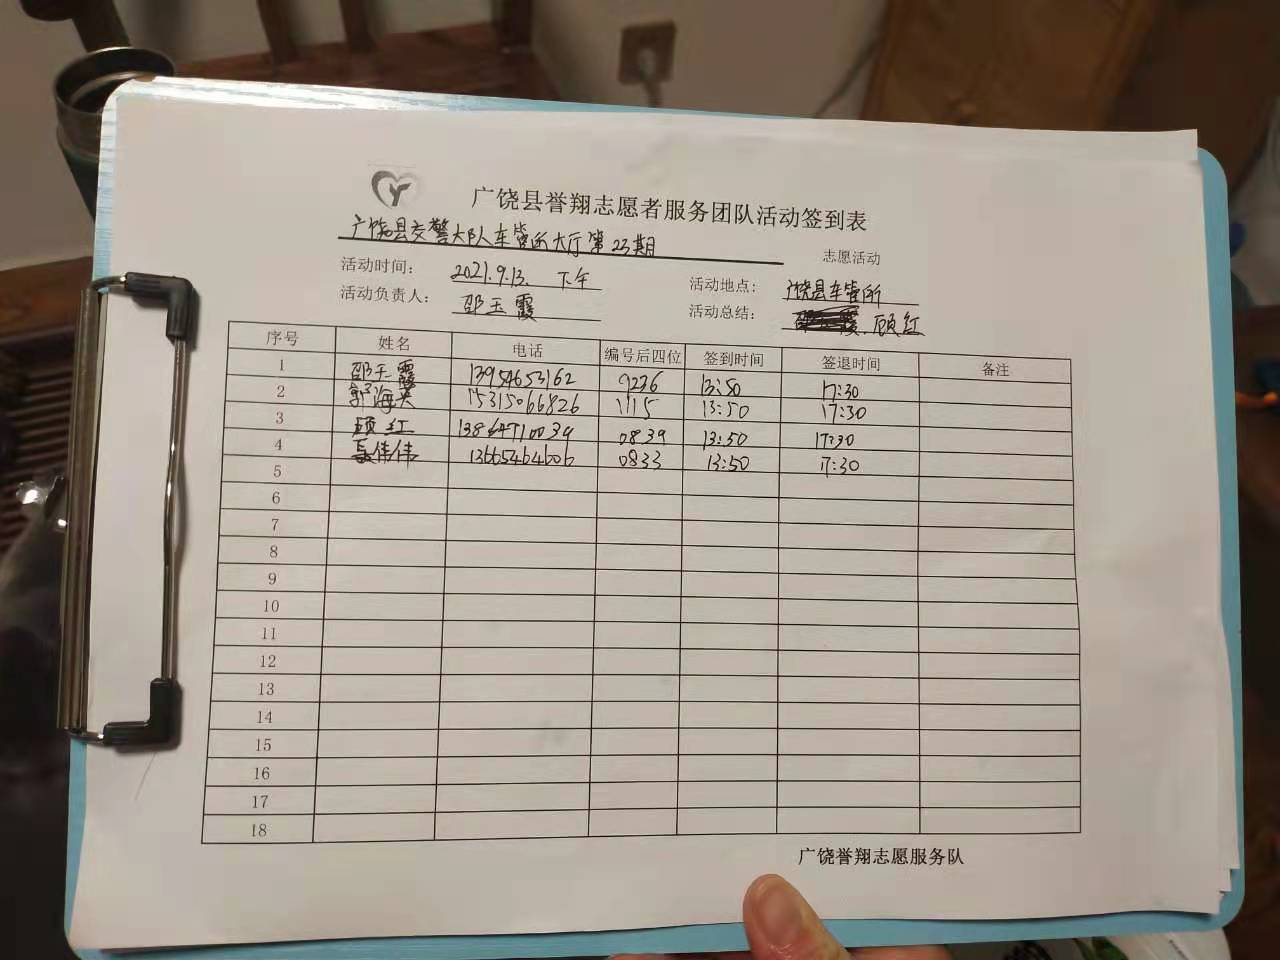 广饶县誉翔志愿者服务团队活动签到表
广饶县交警大队车管所大厅第23期 志愿活动
活动时间: 2021.9.13. 下午 活动地点: 广饶县车管所
活动负责人: 邵玉霞 活动总结: 顾红
序号 姓名 电话 编号后四位 签到时间 签退时间 备注
1 邵玉霞 13954653162 9236 13:50 17:30
2 郭海英 15315066826 1115 13:50 17:30
3 顾红 0839 13:50 17:30
4 聂伟伟 13665464606 0833 13:50 17:30
5
6
7
8
9
10
11
12
13
14
15
16
17
18
广饶誉翔志愿服务队